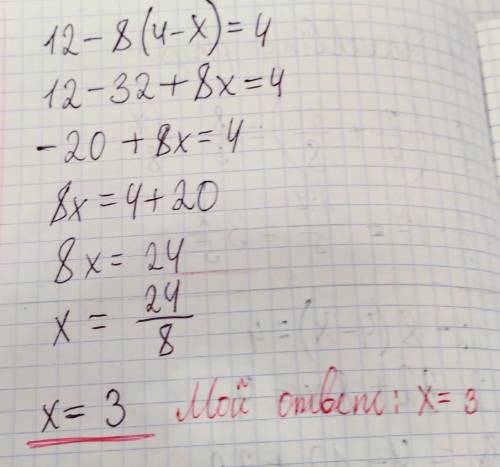 12-8(4-x)=4
12-32+8x=4
-20+8x=4
8x=4+20
8x=24
x=24/8
x=3 Мой ответ: x=3